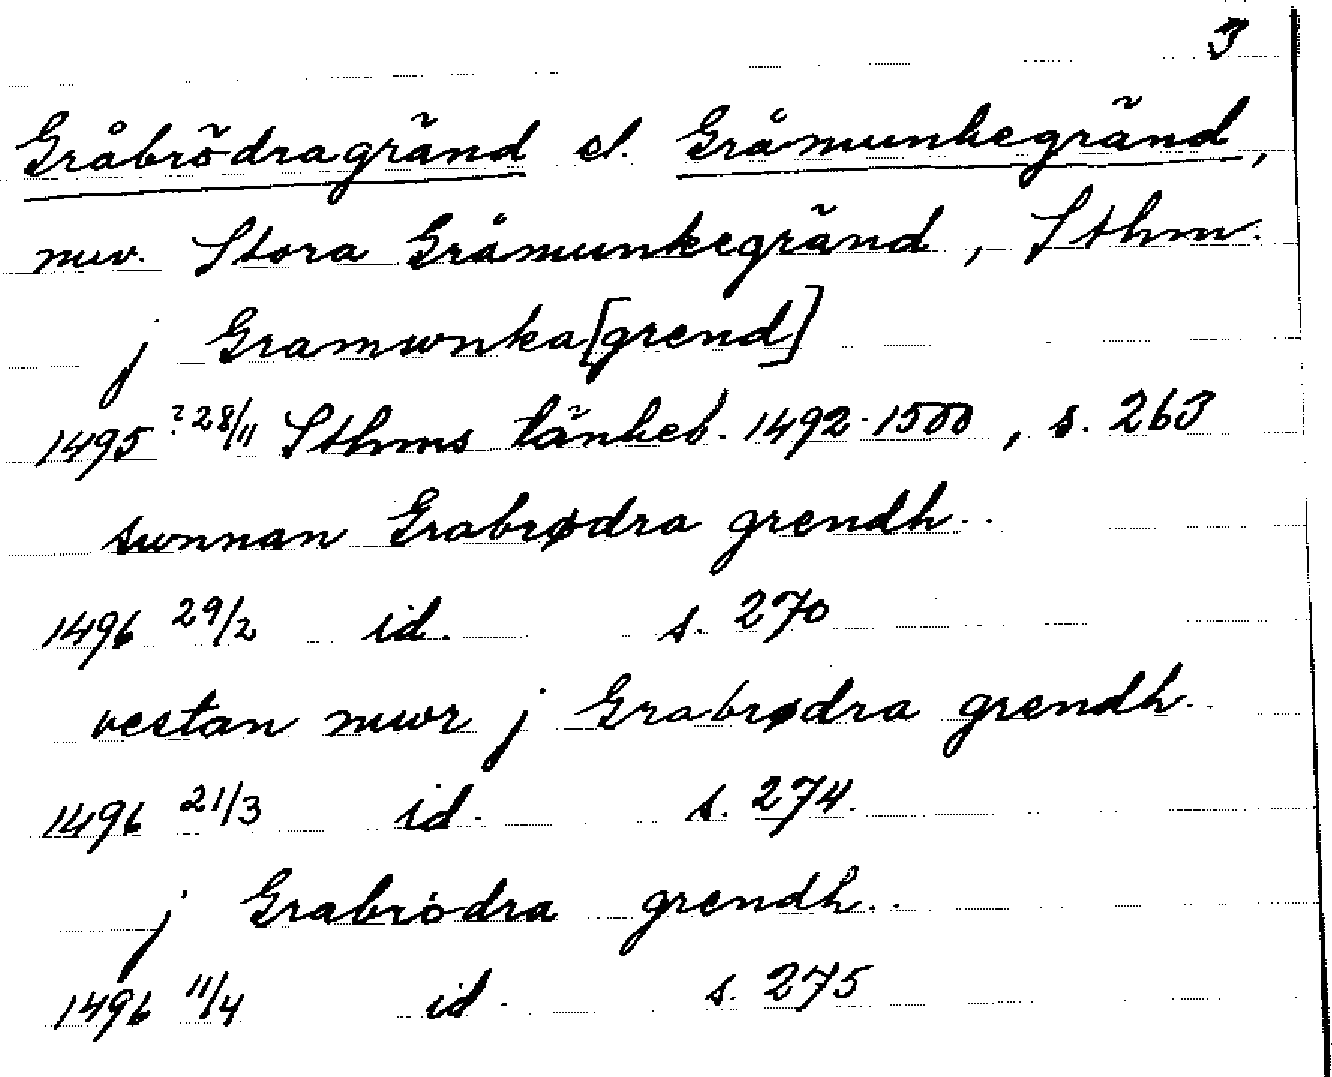 3
Gråbrödragränd el. Gråmunkegränd,
nuv. Stora Gråmunkegränd, Sthm.
j Gramwnka[grend]
1495 ?28/11 Sthms tänkeb. 1492-1500, s. 263
swnnan Grabrødra grendh..
1496 29/2 id. s. 270
vestan mwr j Grabrødra grendh.
1496 21/3 id. s. 274.
j Grabrödra grendh..
1496 11/4 id. s. 275